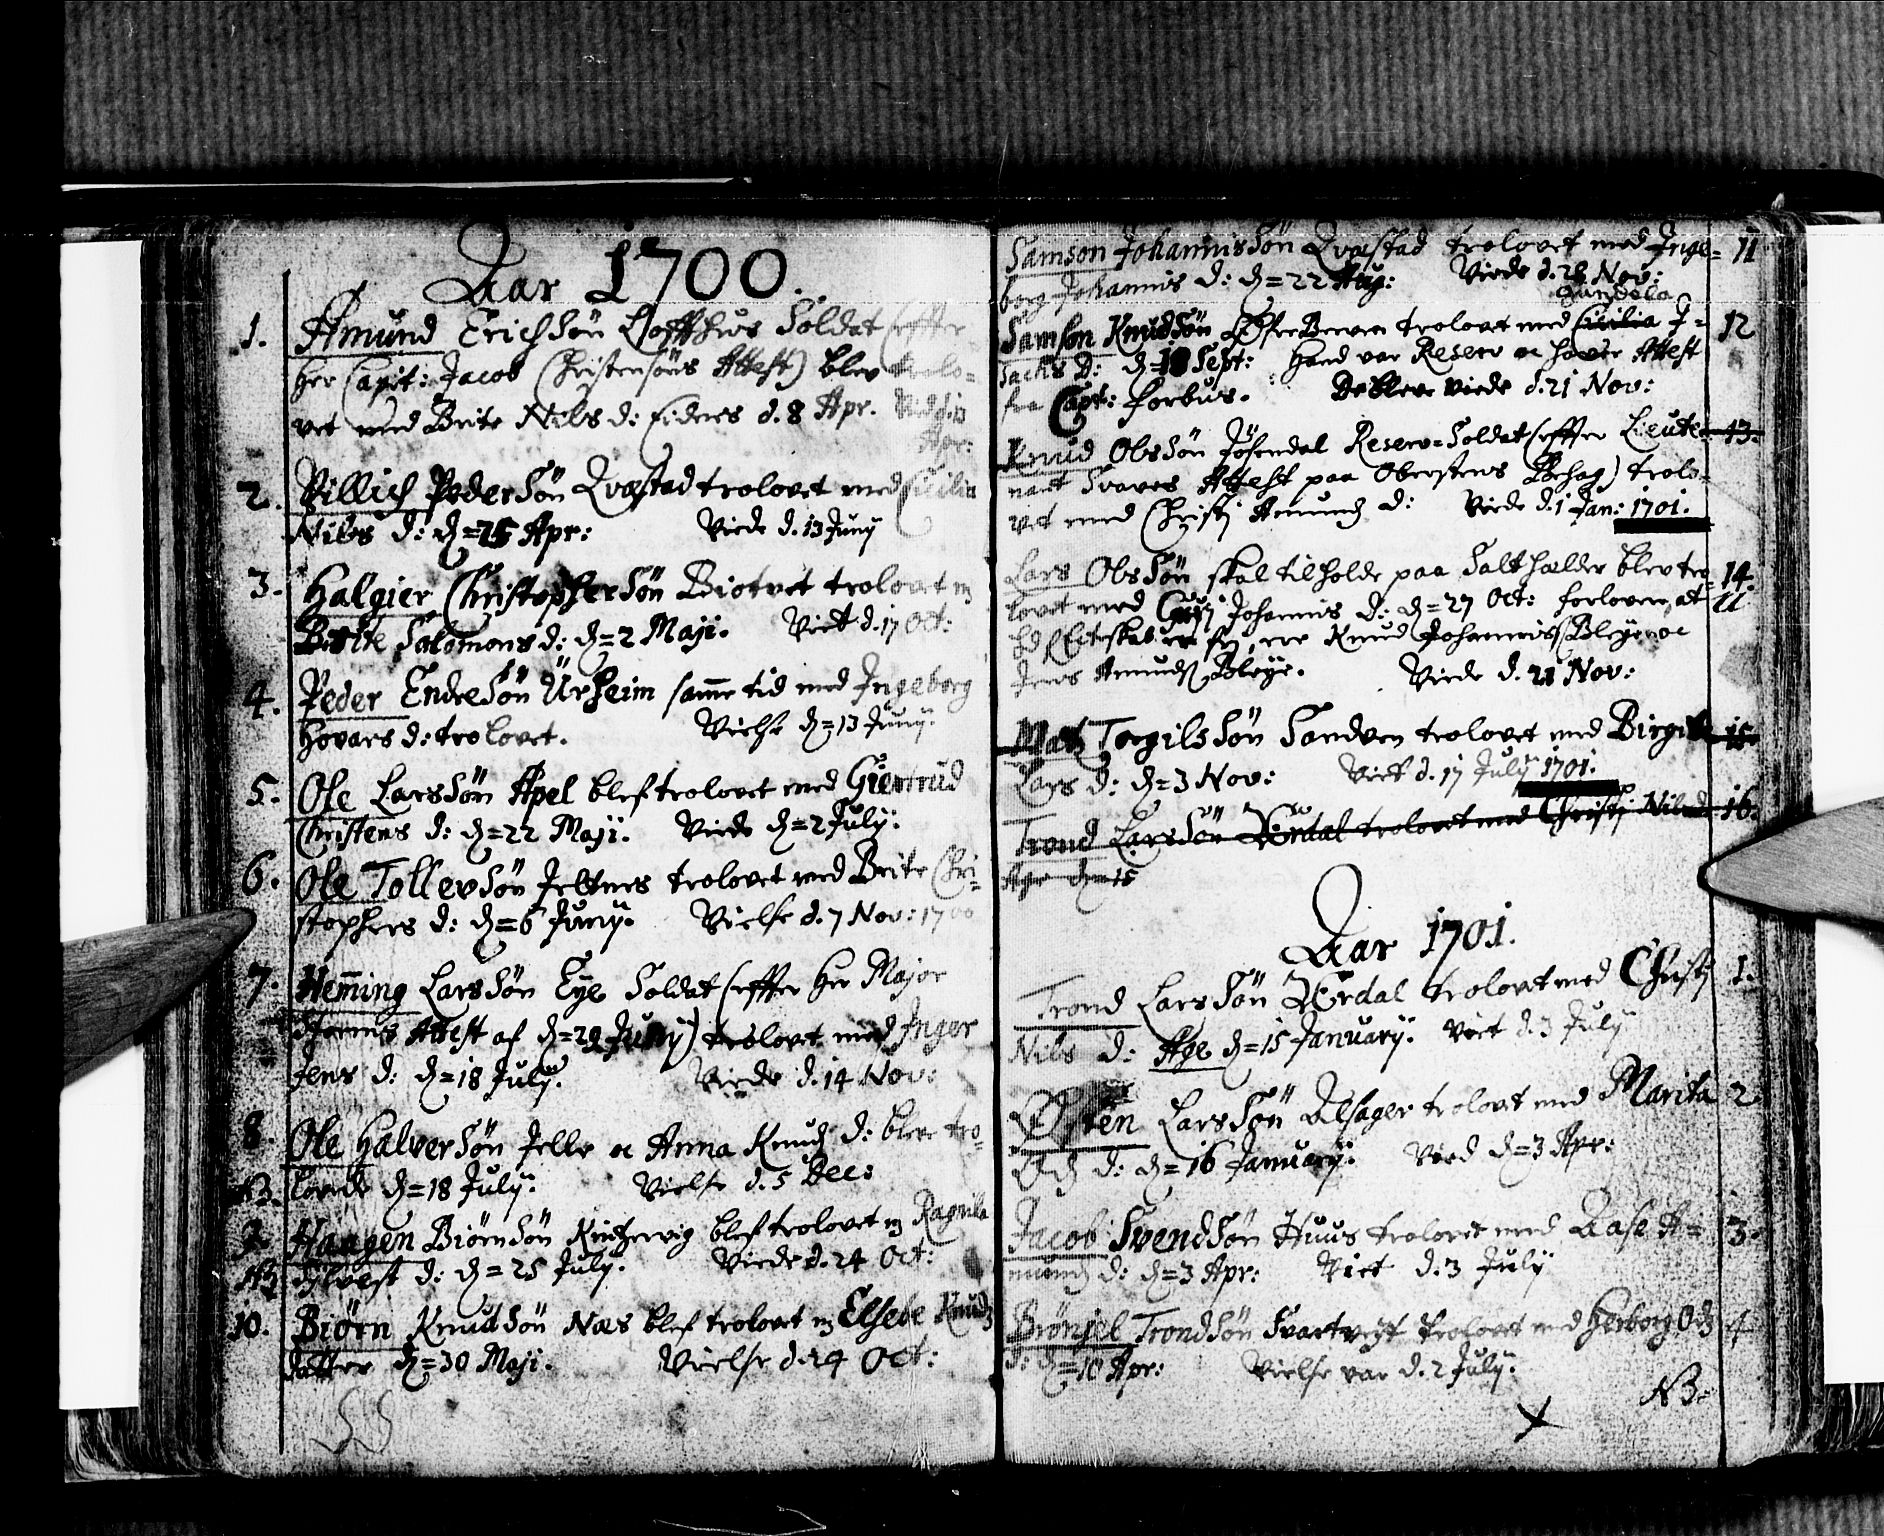 Aar 1700.
1. Amund Erichsøn Lofthus Soldat (effter
Her Capit: Jacob Christensøns Attest) blev trolo-
vet med Brite Nils d: Eidnes d. 8 Apr. Vidji
Apr:
2. Villich Pedersøn Qvæstad trolovet med Cicilia
Nils d: d=25 Apr: Viede d. 13 Junij
3. Halgier Christophersøn Biotvet trolovet m
Brite Salomons d: d=2 Maji. Viet d. 17 Oct:
4. Peder Endresøn Ürheim samme tid med Ingeborg
Hovars d: trolovet. Vielse d=13 Junij.
5. Ole Larssøn Apel blef trolovet med Giertrud
Christens d: d=22 Maji. Viede d=2 Julij.
6. Ole Tollevsøn Jeltnes trolovet med Brite Chri-
stophers d: d=6 Junij. Vielse d. 7 Nov: 1700
7. Hemming Larssøn Eye Soldat (effter Her Major
Attest af d=29 Junij) trolovet med Inger
Jens d: d=18 Julij. Viede d. 14 Nov:
8. Ole Halversøn Jelle oc Anna Knuds d: bleve tro-
NB. lovede d=18 Julij. Vielse d. 5 Dec:
9. Haagen Biørnsøn Kindzervig blef trolovet m Ragnile
NB Sylvest d: d=25 Julij. Viede d. 24 Oct:
10. Biørn Knudsøn Næs blef trolovet m Elsebe Knuds
datter d=30 Maji. Vielse d. 24 Oct:
Samson Johannissøn Qvæstad trolovet med Inge- 11
borg Johannis d: d=22 Aug: Viede d. 28 Nov:
Gundela
Samson Knudsøn trolovet med Cicilia I- 12
sachs D: d=18 Sept: Hand var Reserv oc hafde Attest
fra Capt: Forbus. De bleve viede d. 21 Nov:
Knud Olssøn Jøsendal Reserv-Soldat (effter Lieute- 13.
nant Svaves Attest paa Oberstens Behag) trolo-
vet med Christj Amunds D: Viede d. 1 Jan: 1701.
Lars Olssøn skal tilholde paa Salthælder blev tro- 14.
lovet med Guri Johannis d: d=27 Oct: forlovere at 11
Ed ere Knud Johannis Bleye oc
Jens Amunds Bleye. Viede d. 21 Nov:
Mats Torgilssøn Sandven trolovet med Birgite 15
Lars d: d=3 Nov: Viet d. 17 Julij 1701.
Trond Larssøn Ørdal trolovet med Christj Nils d 16.
Age den 15
Aar 1701.
Trond Larssøn Ørdal trolovet med Christj 1.
Nils d: Age d=15 Januarij. Viet d. 3 Julij
Østen Larssøn Alsager trolovet med Marita 2
Ods d: d=16 Januarij. Vied d=3 Apr:
Jacob Svendsøn Huus trolovet med Aase A- 3.
munds d: d=3 Apr: Viet d. 3 Julij
Brønjel Trondsøn Svartveit trolovet med Herborg Ods 4
d: d=10 Apr: Vielse var d. 2 Julij.
NB.